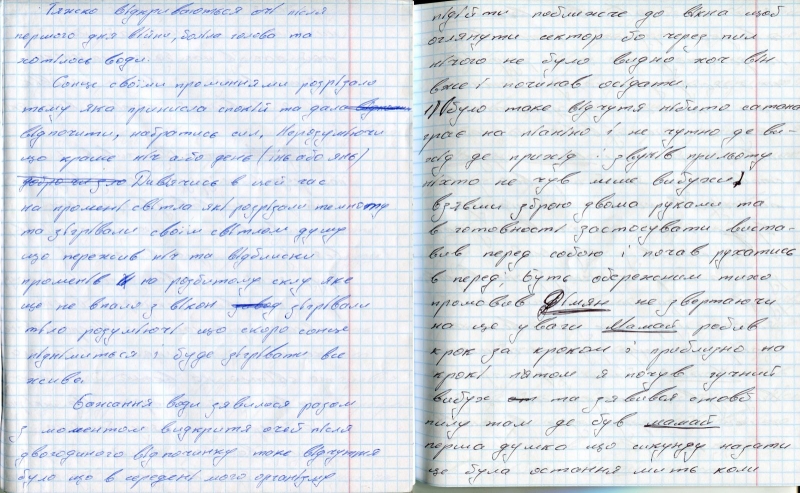 Тяжко відкриваються очі після
першого дня війни, боліла голова та
хотілось води.
Сонце своїми проминнями розрізали
тьму яка принисла спокій та дала
відпочити, набратись сил, Нерозуміючи
що краще ніч або день (інь або янь)
Дивячись в цей час
на промені світла які розрізали темноту
та зігрівали своїм світлом душу
що пережив ніч та відблиски
променів на розбитому склу яке
ще не впала з вікон зігрівали
тіло розуміючі що скоро сонце
підніметься і буде зігрівати все
живе.
Бажання води зявилося разом
з моментом видкритя очей після
двогодиного відпочинку таке відчуття
було що в середені мого організму
підійти поближче до вікна щоб
оглянути сектор бо через пил
нічого не було видно хоч він
вже і починав осідати.
було таке відчутя нібито сатана
грає на піаніно і не чутно де ви-
хід де прихід і звуків прильоту
ніхто не чув лише вибухи,
взявши зброю двома руками та
в готовності застосувати виста-
вив перед собою і почав рухатись
в перед; Будь обережним тихо
промовив Дімян не звертаючи
на це уваги Мамай робив
крок за кроком і приблизно на
крокі пятом я почув гучний
вибух та зявився стовб
пилу там де був мамай
перша думка що секунду назати
це була остання мить коли